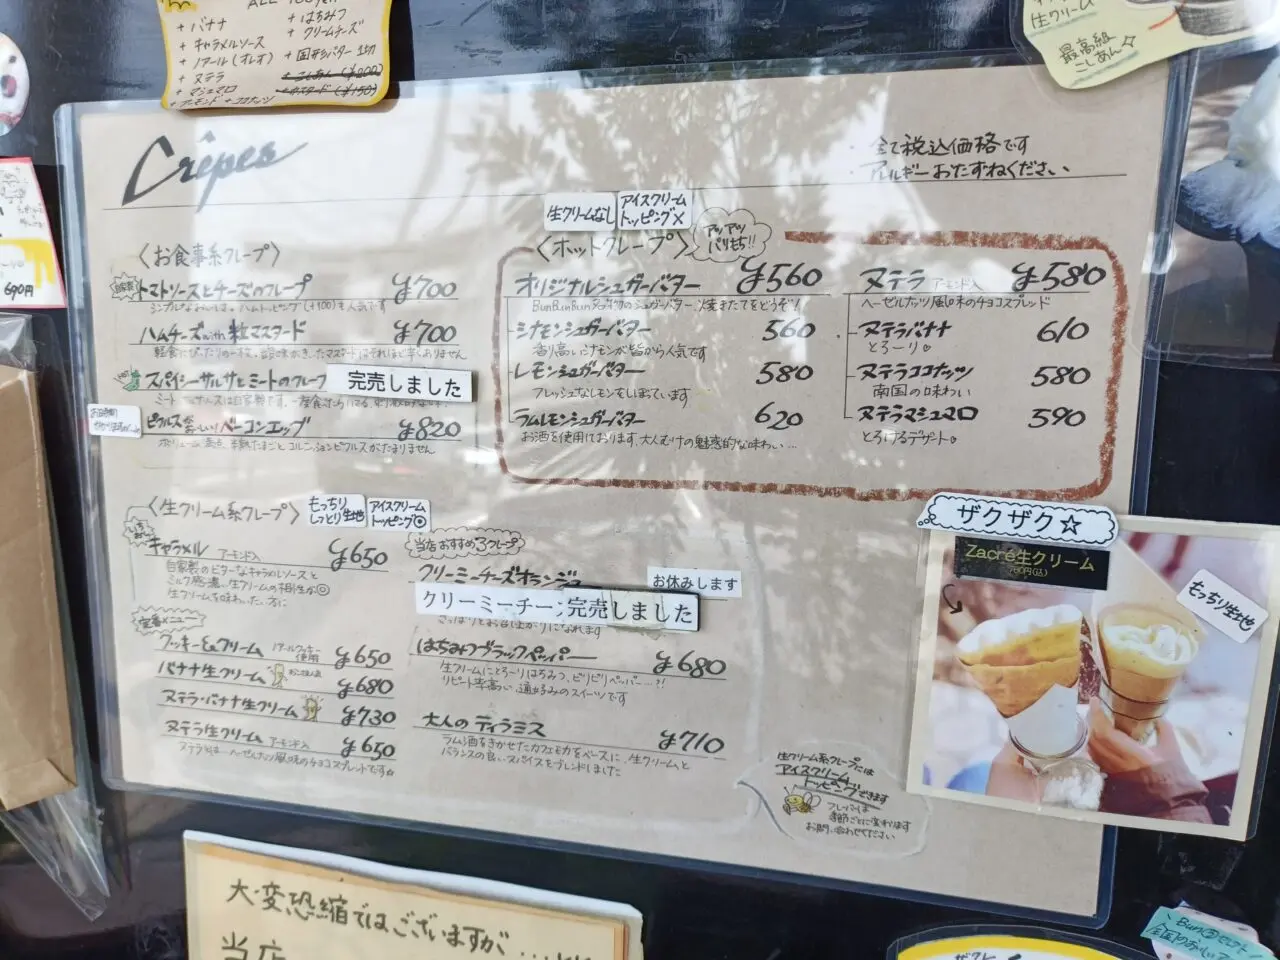 ALL
+ バナナ
+ はちみつ
+ キャラメルソース
+ クリームチーズ
+ リアール(オレオ)
+ 固形バター 1切
+ ヌテラ
+ こしあん(¥200)
+ マシュマロ
+ カスタード(¥150)
+ アーモンド + ココナッツ
生クリーム
最高級
こしあん☆
690円
Crêpes
全て税込価格です
アレルギーおたずねください
〈お食事系クレープ〉
自家製
トマトソースとチーズのクレープ ¥700
ハムチーズwith粒マスタード ¥700
スパイシーサルサとミートのクレープ
完売しました
ピクルスがおいしい!ベーコンエッグ ¥820
ボリューム満点、半熟たまごとコルニッションピクルスがたまりません
生クリームなし
アイスクリーム
トッピング×
〈ホットクレープ〉
アツアツ
パリもち!!
オリジナルシュガーバター ¥560
シナモンシュガーバター 560
香り高いシナモンが昔から人気です
レモンシュガーバター 580
フレッシュなレモンをしぼっています
ラムレモンシュガーバター 620
お酒を使用しております、大人むけの魅惑的な味わい…
ヌテラ アーモンド入 ¥580
ヘーゼルナッツ風味のチョコスプレッド
ヌテラバナナ 610
とろーり
ヌテラココナッツ 580
南国の味わい
ヌテラマシュマロ 590
とろけるデザート。
〈生クリーム系クレープ〉
もっちり
しっとり生地
アイスクリーム
トッピング◎
キャラメル アーモンド入 ¥650
自家製のビターなキャラメルソースと
ミルク感濃い生クリームの相性が◎
生クリームを味わいたい方に
定番メニュー
クッキー&クリーム リアールクッキー使用 ¥650
バナナ生クリーム ¥680
ヌテラ・バナナ生クリーム ¥730
ヌテラ生クリーム アーモンド入 ¥650
ヌテラとは…ヘーゼルナッツ風味のチョコスプレッドです☆
当店おすすめ3クレープ
クリーミーチーズオランジュ
お休みします
クリーミーチーズ
完売しました
さっぱりとお召し上がりになれます
はちみつブラックペッパー ¥680
生クリームにとろーりはちみつ、ピリピリペッパー…?!
リピート率高い、通好みのスイーツです
大人のティラミス ¥710
ラム酒をきかせたカフェモカをベースに、生クリームと
バランスの良いスパイスをブレンドしました
生クリーム系クレープには
アイスクリーム
トッピングできます
フレーバーは
季節ごとに変わります
お問い合わせください
ザクザク☆
Zacré生クリーム
もっちり生地
大変恐縮ではございますが…
当店